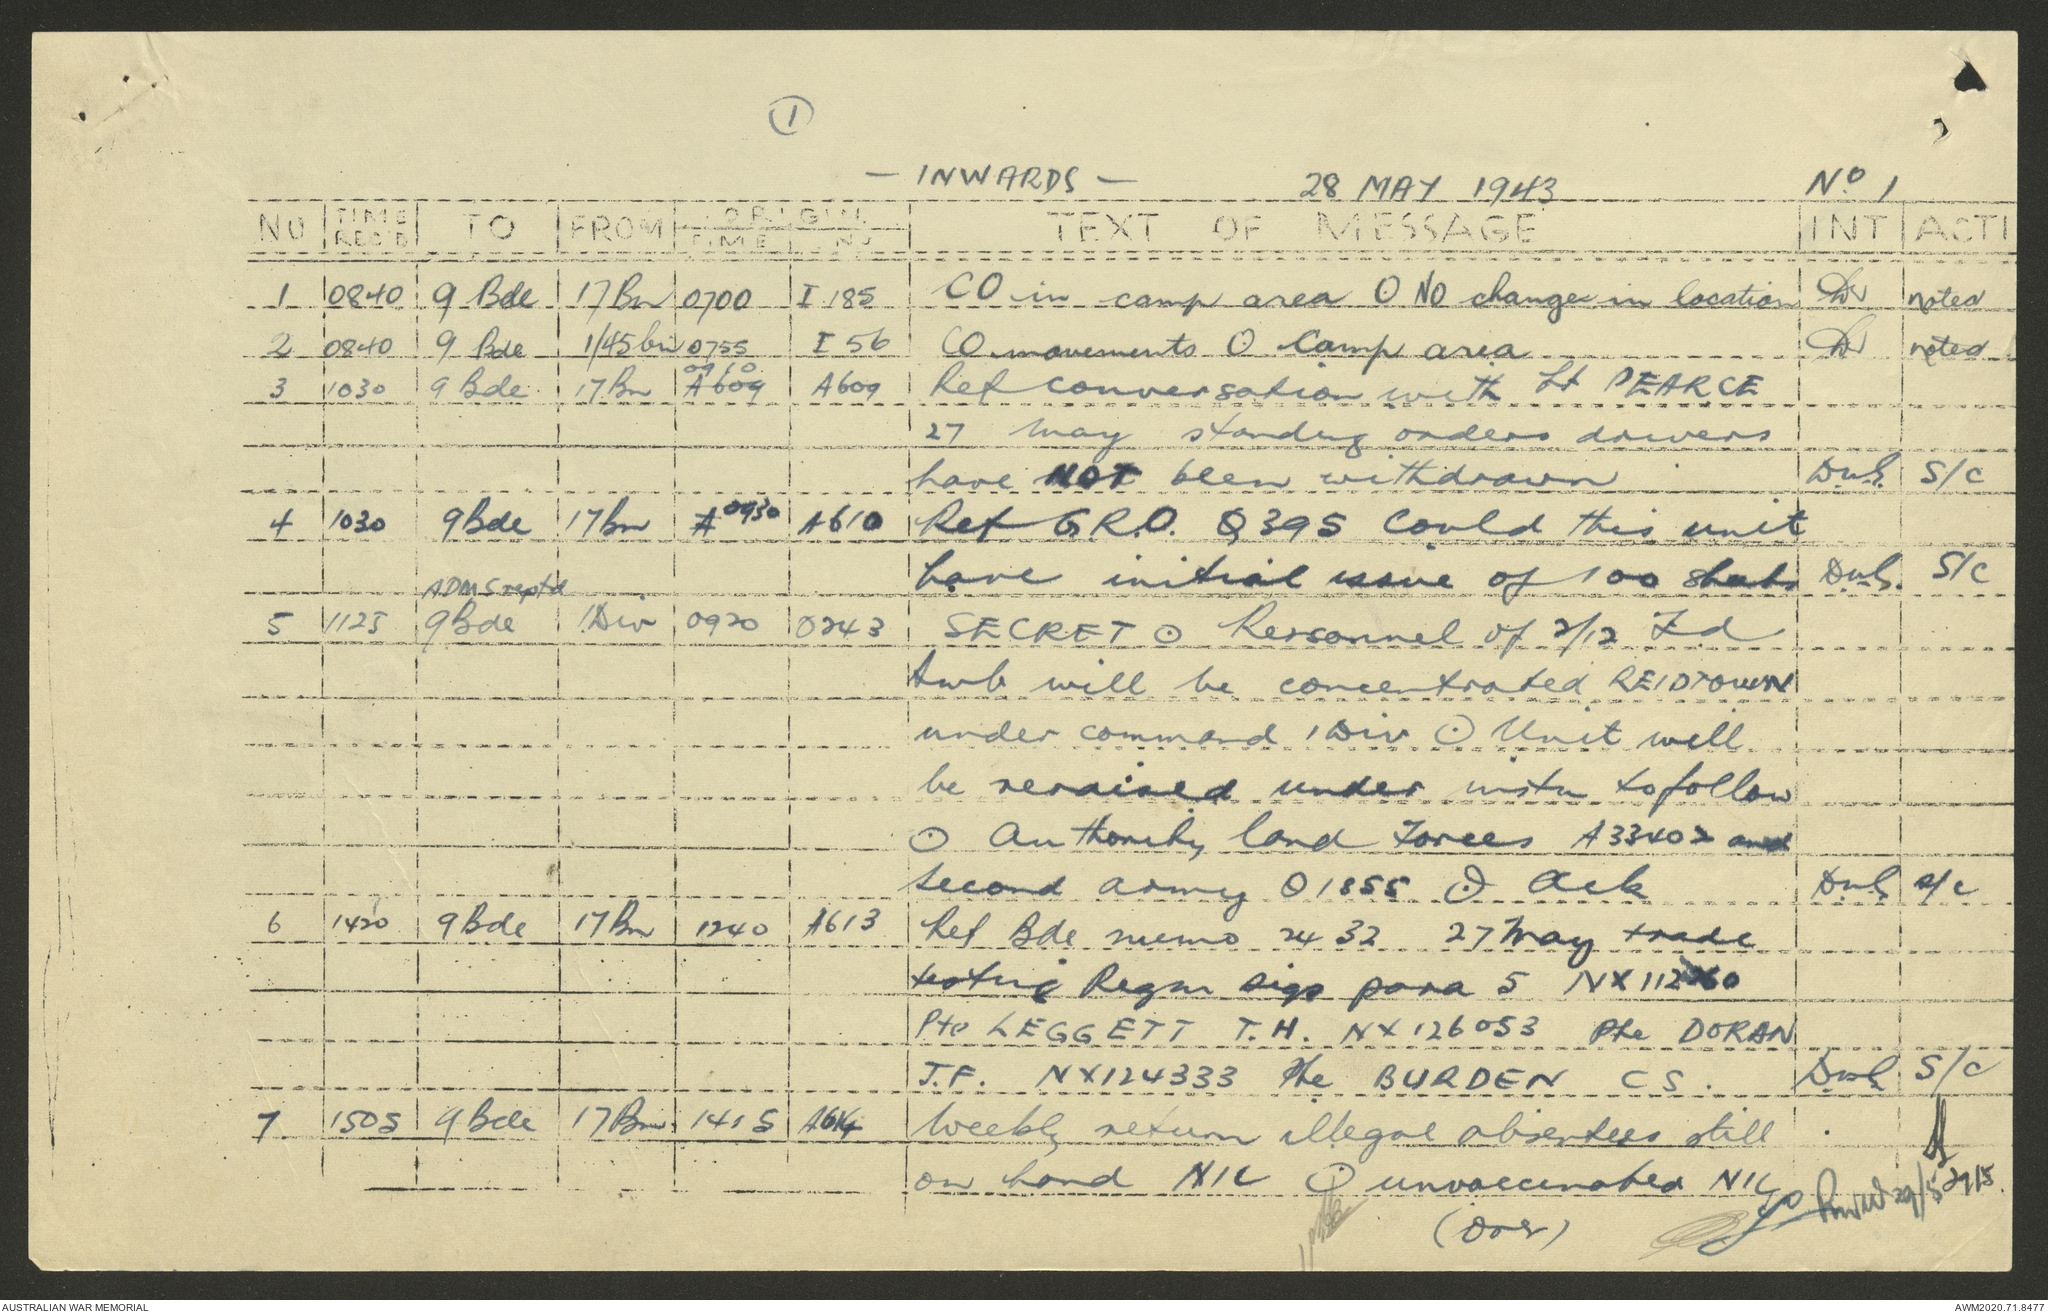 1
- INWARDS - 28 MAY 1943 No 1
NO TIME REC'D TO FROM ORIGIN TIME NO TEXT OF MESSAGE INT ACTI
1 0840 9 Bde 17 Bn 0700 I 185 CO in camp area O NO change in location noted
2 0840 9 Bde 1/45 bn 0755 I 56 CO movements O Camp area noted
0910
3 1030 9 Bde 17 Bn A609 A609 Ref conversation with Lt PEARCE
27 May standing orders drivers
have NOT been withdrawn S/C
4 1030 9 Bde 17 Bn A 0930 A610 Ref G.R.O. Q395 Could this unit
have initial issue of 100 sheets S/C
ADMS reptd
5 1125 9 Bde 1 Div 0920 O243 SECRET O Personnel of 2/12 Fd
Amb will be concentrated REIDTOWN
under command 1 Div O Unit will
be reraised under instn to follow
O Authority Land Forces A33402 and
Second Army O1855 O Ack S/C
6 1420 9 Bde 17 Bn 1240 A613 Ref Bde memo 2432 27 May trade
testing Regm sigs para 5 NX112260
Pte LEGGETT T.H. NX126053 Pte DORAN
J.F. NX124333 Pte BURDEN CS. S/C
7 1505 9 Bde 17 Bn 1415 A614 Weekly return illegal absentees still
on hand NIL O unvaccinated NIL 29/5 29/5.
(Over)
AUSTRALIAN WAR MEMORIAL AWM2020.71.8477